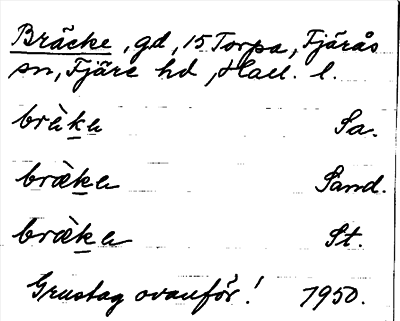 Bräcke, gd, 15 Torpa, Fjärås
sn, Fjäre hd, Hall. l.
brὲk̲a Sa.
bræ̀k̲a Sand.
bræ̀k̲a St.
Grustag ovanför! 1950.